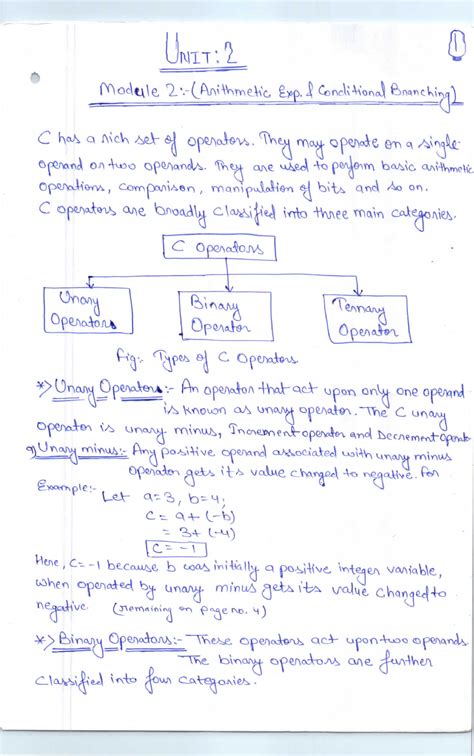 1
UNIT: 2
Module 2:-(Arithmetic Exp. & Conditional Branching)
C has a rich set of operators. They may operate on a single
operand or two operands. They are used to perform basic arithmetic
operations, comparison, manipulation of bits and so on.
C operators are broadly classified into three main categories.
C Operators
Unary Operators
Binary Operator
Ternary Operator
Fig:- Types of C Operators
*> Unary Operators:- An operator that act upon only one operand
is known as unary operator. The C unary
operator is unary minus, Increment operator and Decrement Operator
a) Unary minus:- Any positive operand associated with unary minus
operator gets its value changed to negative. For
Example:-
Let a=3, b=4;
c = a + (-b)
= 3 + (-4)
c = -1
Here, C=-1 because b was initially a positive integer variable,
when operated by unary minus gets its value changed to
negative. (remaining on page no. 4)
*> Binary Operators:- These operators act upon two operands
The binary operators are further
classified into four categories.